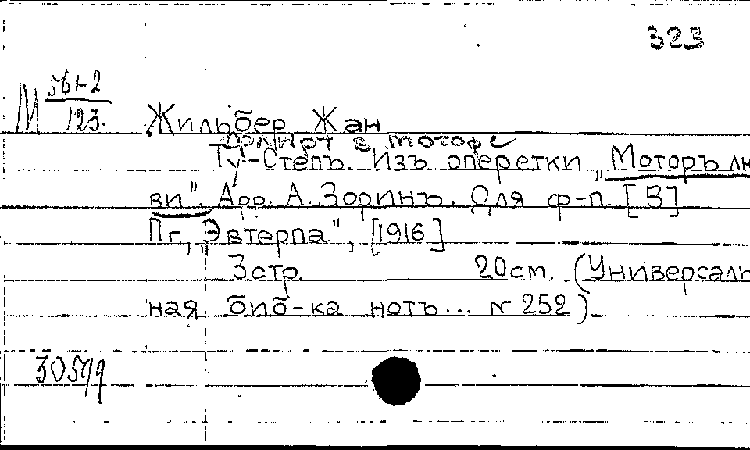 323
М 561-2
123.
Жильбер Жан
Ту-Степъ. Изъ оперетки „Моторъ лю
ви". Арр. А. Зоринъ. Для ф-п. [В]
Пг., „Эвтерпа", [1916]
3 стр. 20 см. (Универсаль
ная биб-ка нотъ... № 252)